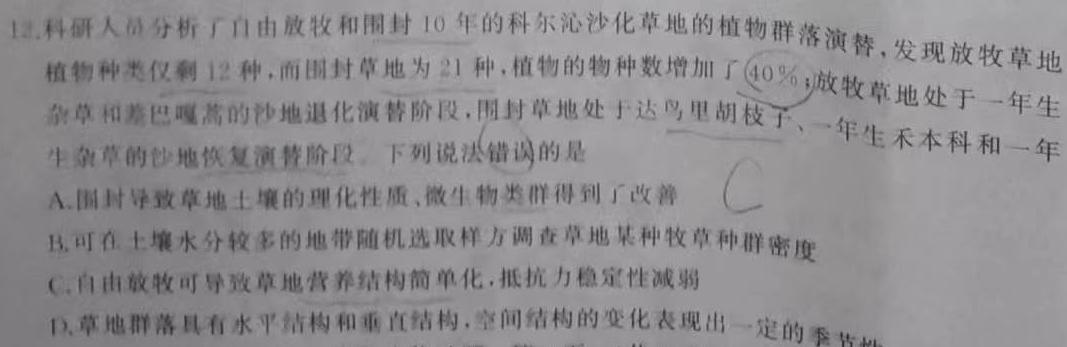 12.科研人员分析了自由放牧和围封 10 年的科尔沁沙化草地的植物群落演替,发现放牧草地
植物种类仅剩 12 种,而围封草地为 21 种,植物的物种数增加了 40%;放牧草地处于一年生
杂草和差巴嘎蒿的沙地退化演替阶段,围封草地处于达乌里胡枝子、一年生禾本科和一年
生杂草的沙地恢复演替阶段。下列说法错误的是
A.围封导致草地土壤的理化性质、微生物类群得到了改善
C
B.可在土壤水分较多的地带随机选取样方调查草地某种牧草种群密度
C.自由放牧可导致草地营养结构简单化,抵抗力稳定性减弱
D.草地群落具有水平结构和垂直结构,空间结构的变化表现出一定的季节性